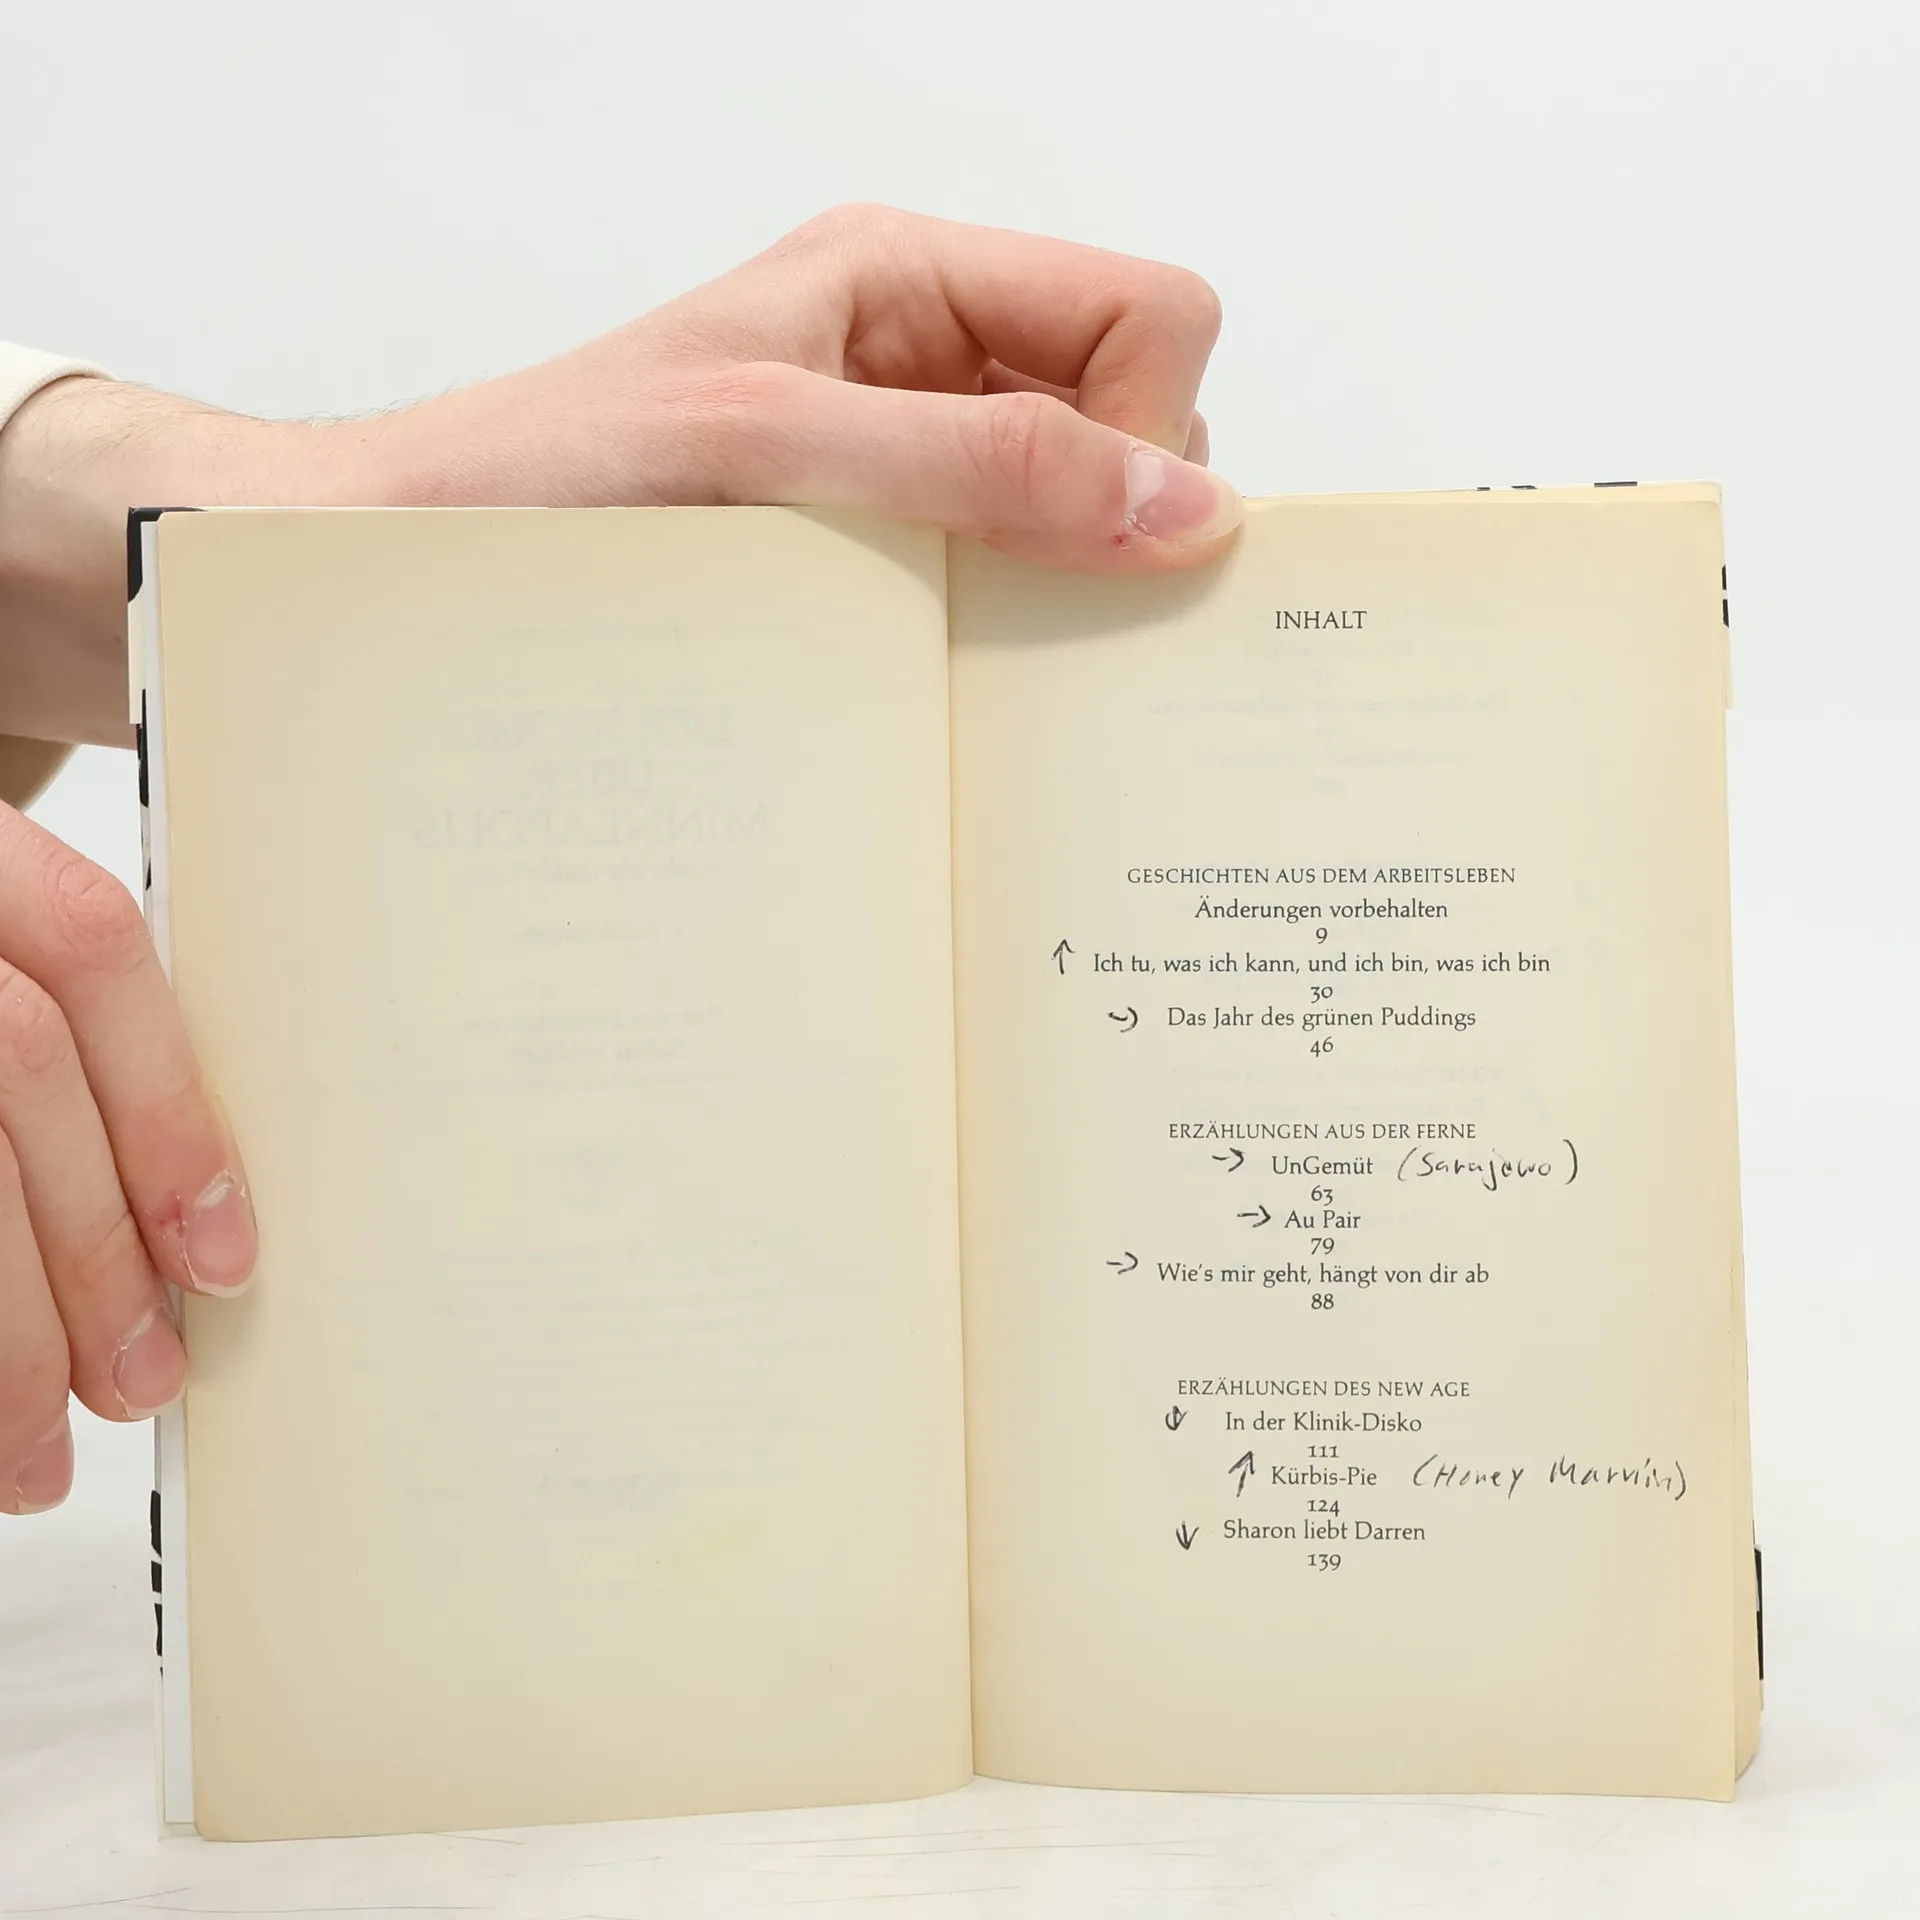 INHALT
GESCHICHTEN AUS DEM ARBEITSLEBEN
Änderungen vorbehalten
9
↑ Ich tu, was ich kann, und ich bin, was ich bin
30
→ Das Jahr des grünen Puddings
46
ERZÄHLUNGEN AUS DER FERNE
→ UnGemüt (Sarajewo)
63
→ Au Pair
79
→ Wie's mir geht, hängt von dir ab
88
ERZÄHLUNGEN DES NEW AGE
↓ In der Klinik-Disko
111
↑ Kürbis-Pie (Honey Marvin)
124
↓ Sharon liebt Darren
139